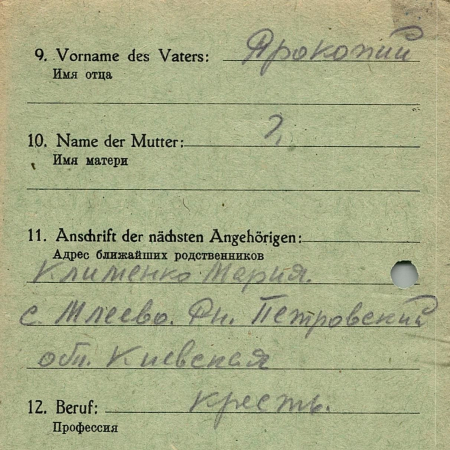 9. Vorname des Vaters: Прокопий
Имя отца
10. Name der Mutter: ?
Имя матери
11. Anschrift der nächsten Angehörigen:
Адрес ближайших родственников
Клименко Мария.
с. Млеево. Рн. Петровский
обл. Киевская
12. Beruf: кресть.
Профессия